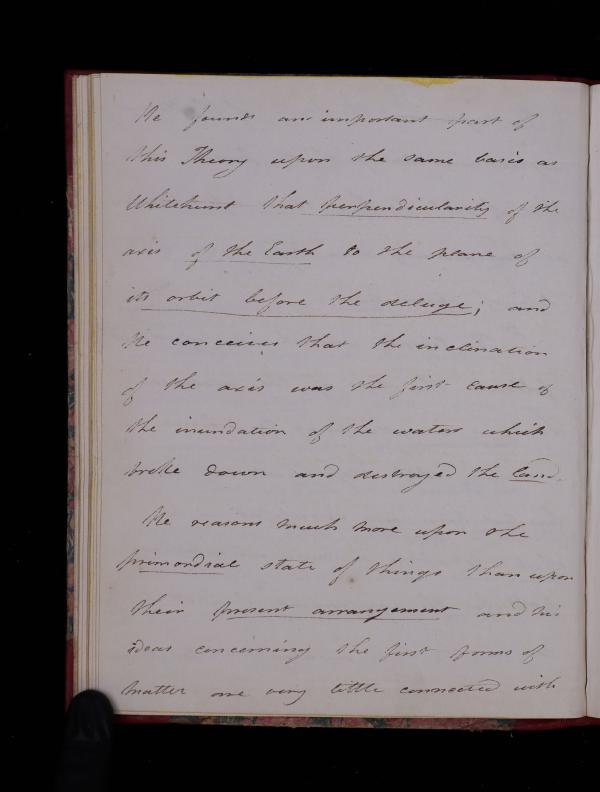 He founds an important part of
this Theory upon the same basis as
Whitehurst that perpendicularity of the
axis of the Earth to the plane of
its orbit before the deluge; and
He conceives that the inclination
of the axis was the first cause of
the inundation of the waters which
broke down and destroyed the land.
He reasons much more upon the
primordial state of things than upon
their present arrangement and his
ideas concerning the first forms of
matter are very little connected with